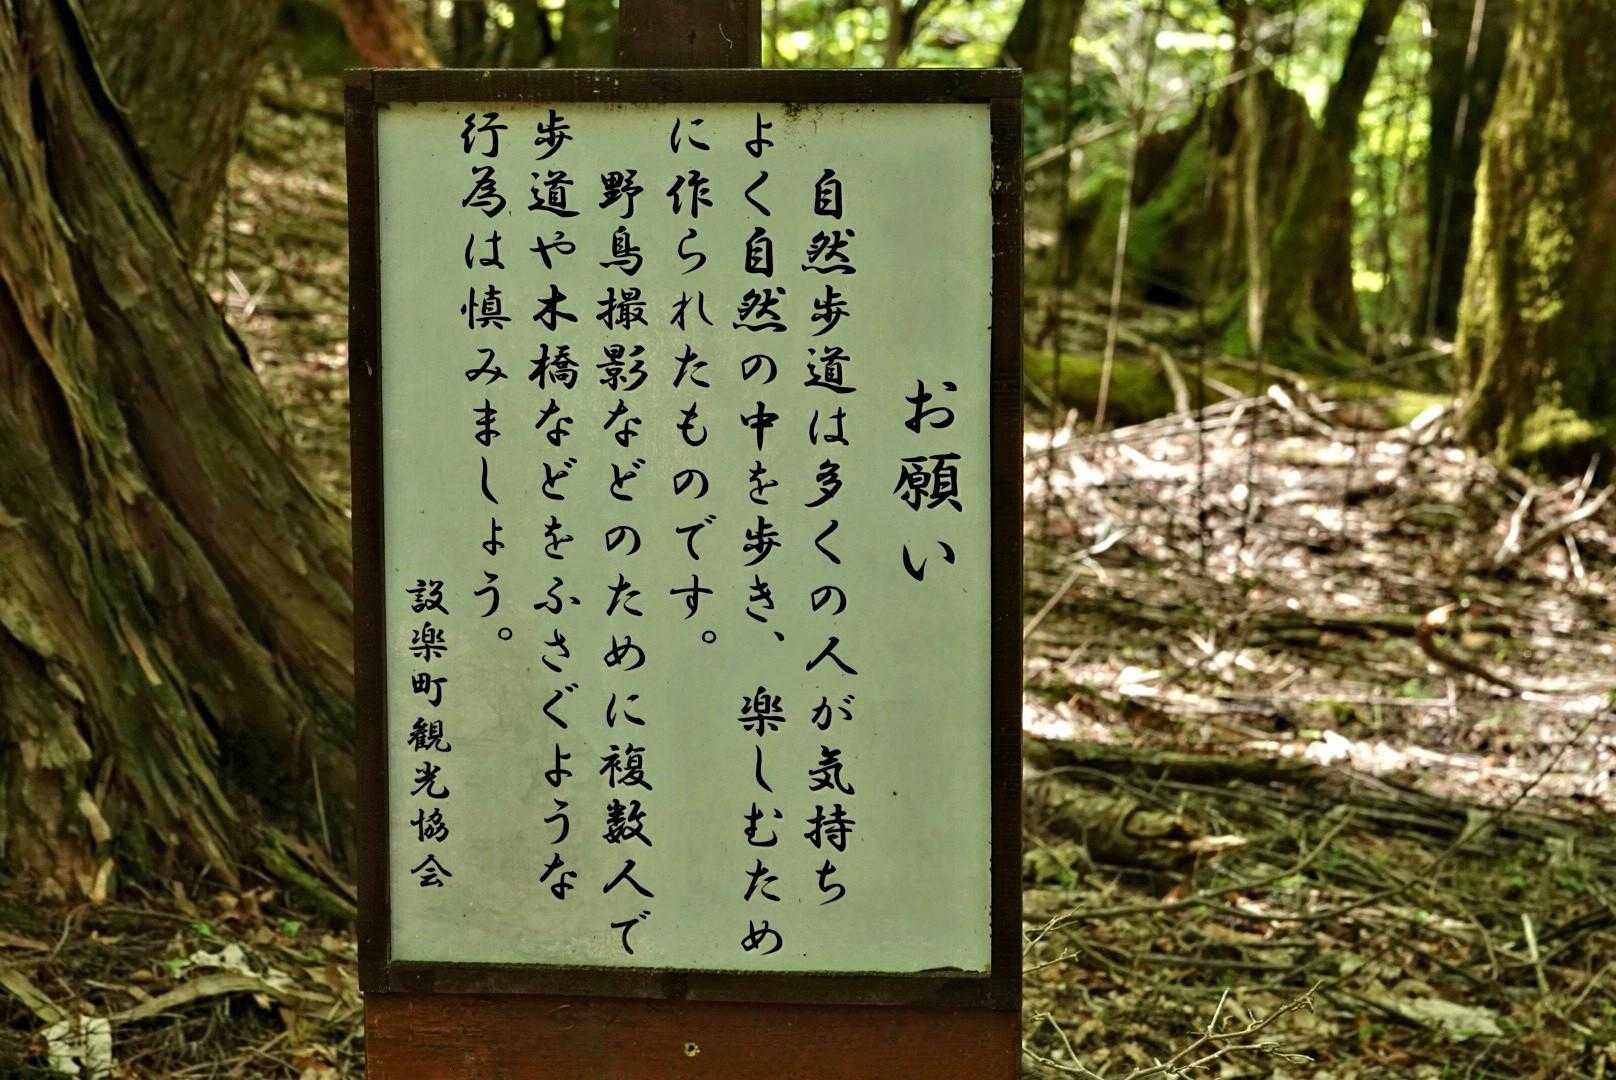 お願い
自然歩道は多くの人が気持ち
よく自然の中を歩き、楽しむため
に作られたものです。
野鳥撮影などのために複数人で
歩道や木橋などをふさぐような
行為は慎みましょう。
設楽町観光協会